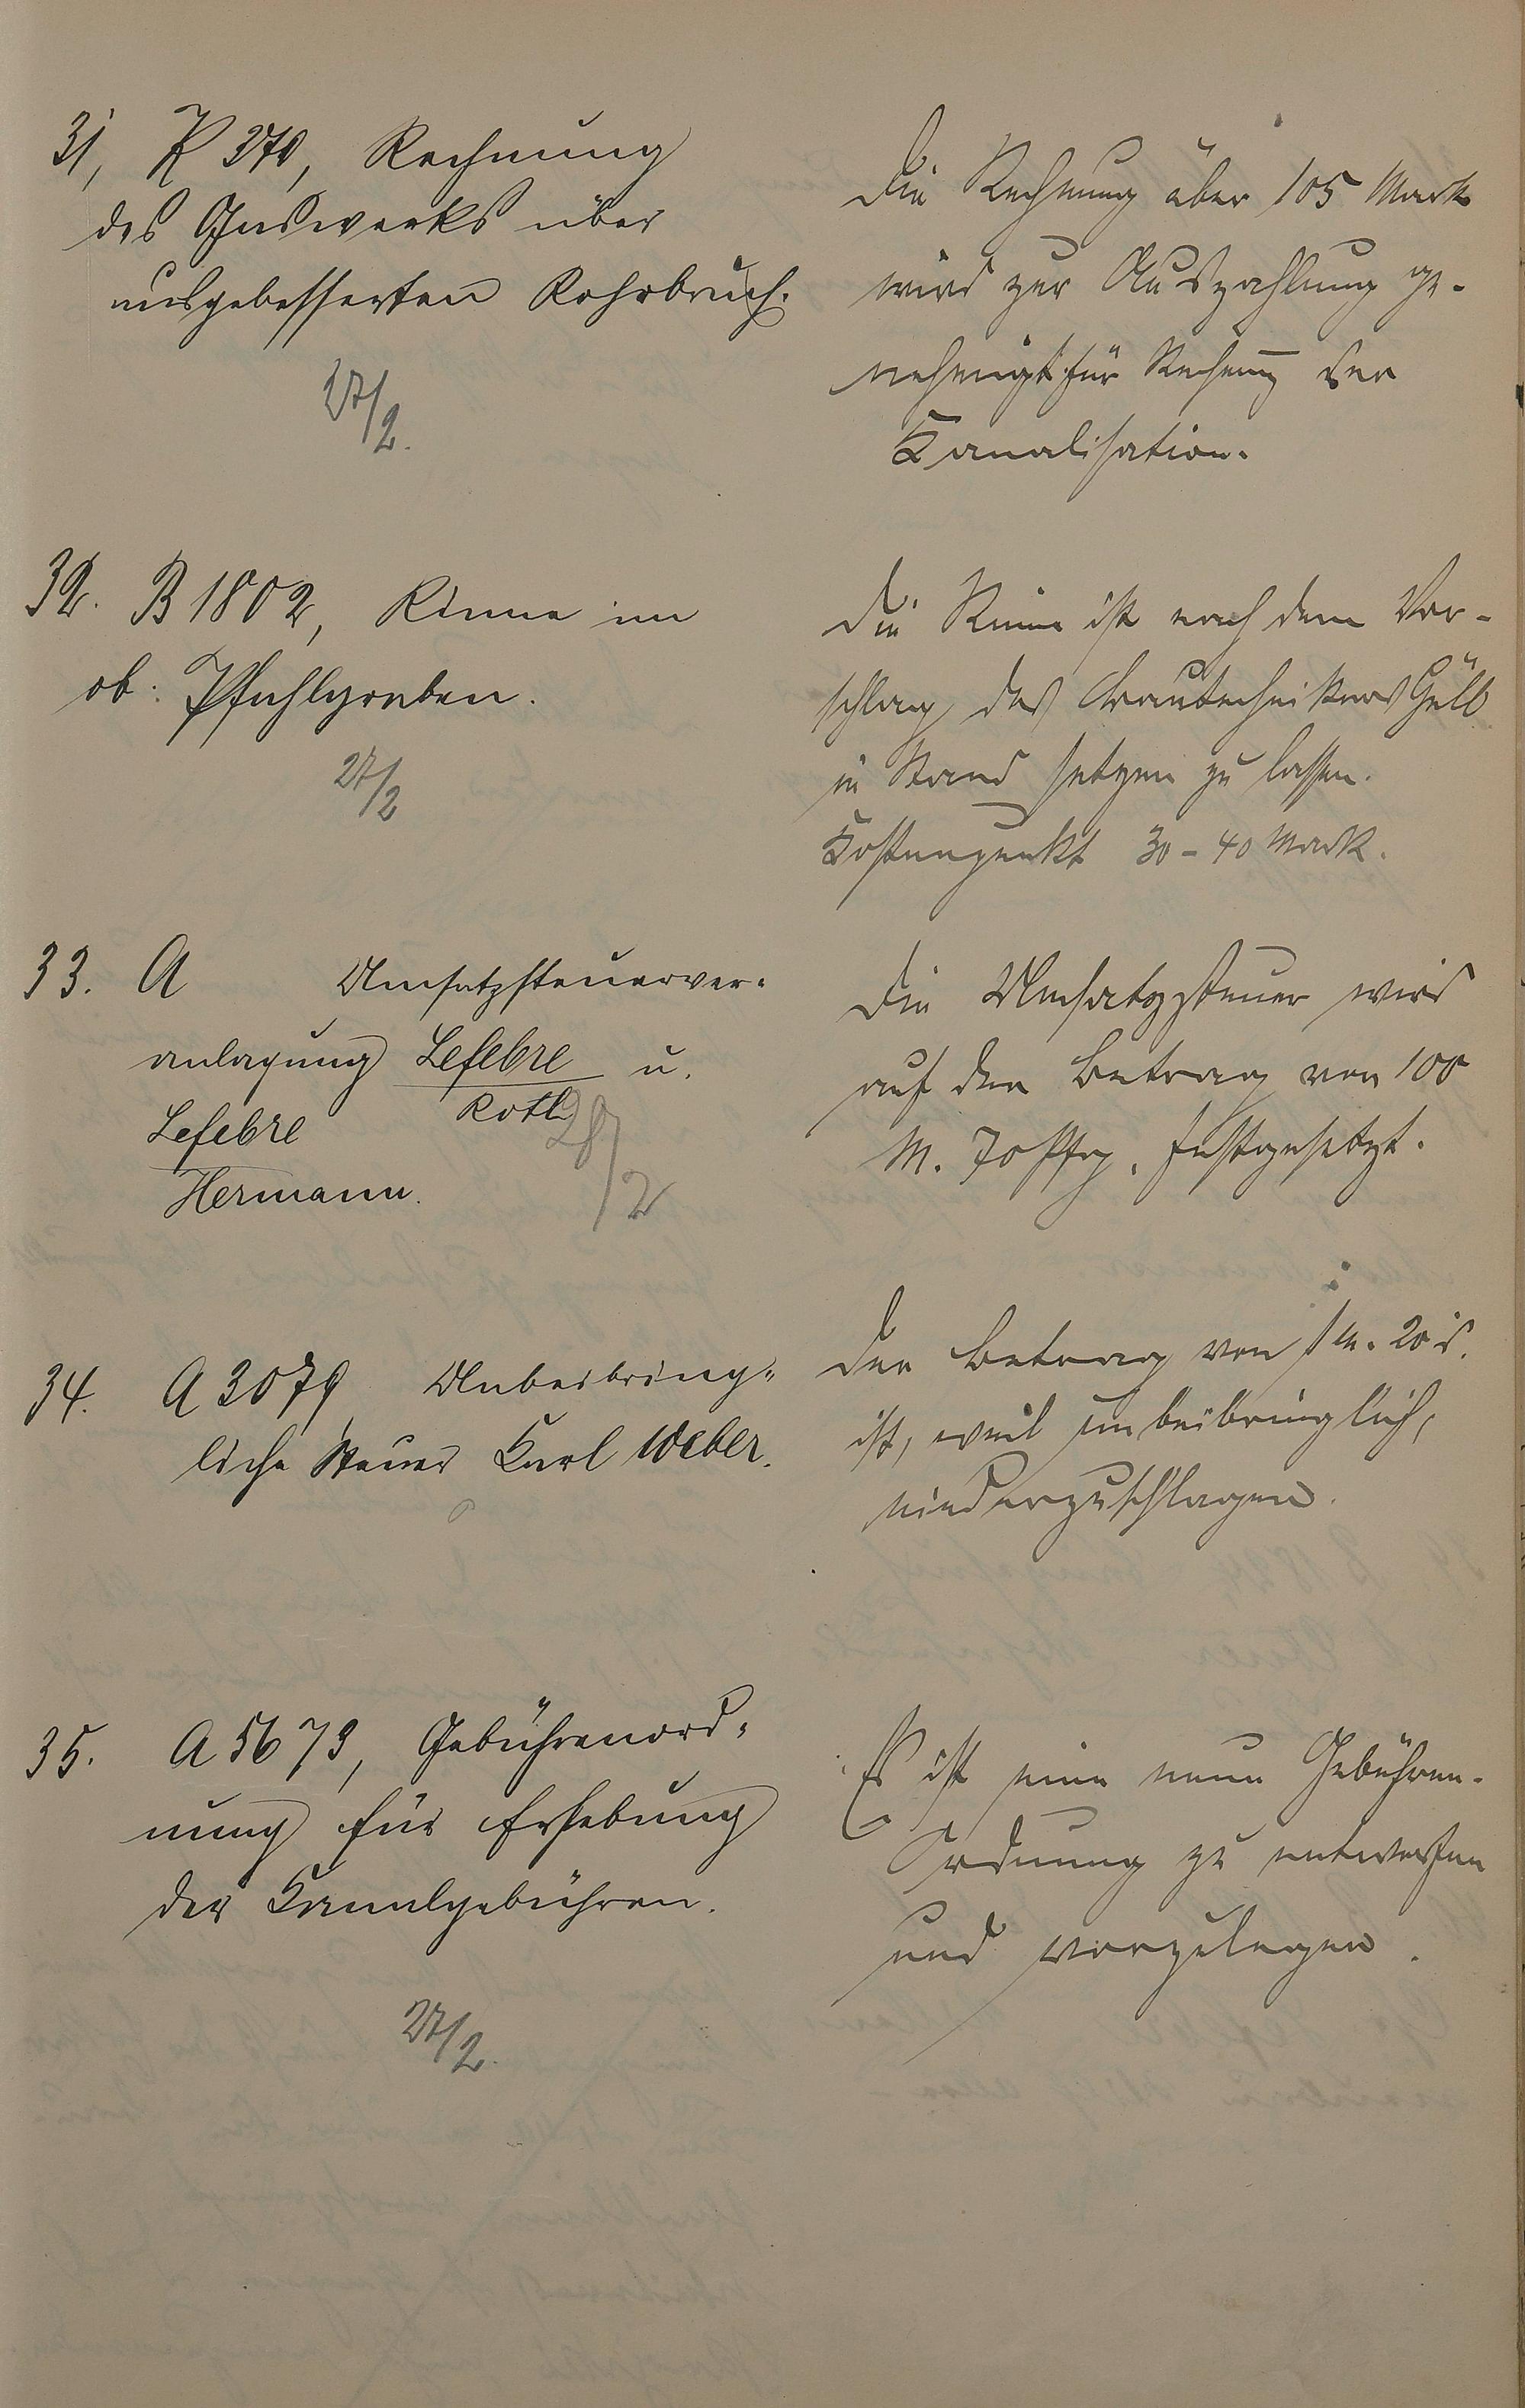 31, K 370, Rechnung
des Gaswerks über
ausgebesserten Rohrbruch.
27/2.
Die Rechnung über 105 Mark
wird zur Auszahlung ge-
nehmigt für Rechnung der
Kanalisation.
32. B 1802, Rinne im
ob: Pfuhlgraben.
27/2
Die Rinne ist nach dem Vor-
schlag des Bautechnikers
in Stand setzen zu lassen.
Kostenpunkt 30-40 Mark.
33. A Umsatzsteuerver-
anlagung Lefebre u.
Roth
Lefebre
Hermann.
28/2
Die Umsatzsteuer wird
auf den Betrag von 100
M. 70 Pfg. festgesetzt.
34. A 3079, Unbeibring-
liche Steuer Karl Weber.
Der Betrag von 1 M. 20 d.
ist, weil unbeibringlich,
niederzuschlagen.
35. A 5673, Gebührenord-
nung für Erhebung
der Kanalgebühren.
27/2.
Es ist eine neue Gebühren-
Ordnung zu entwerfen
und vorzulegen.